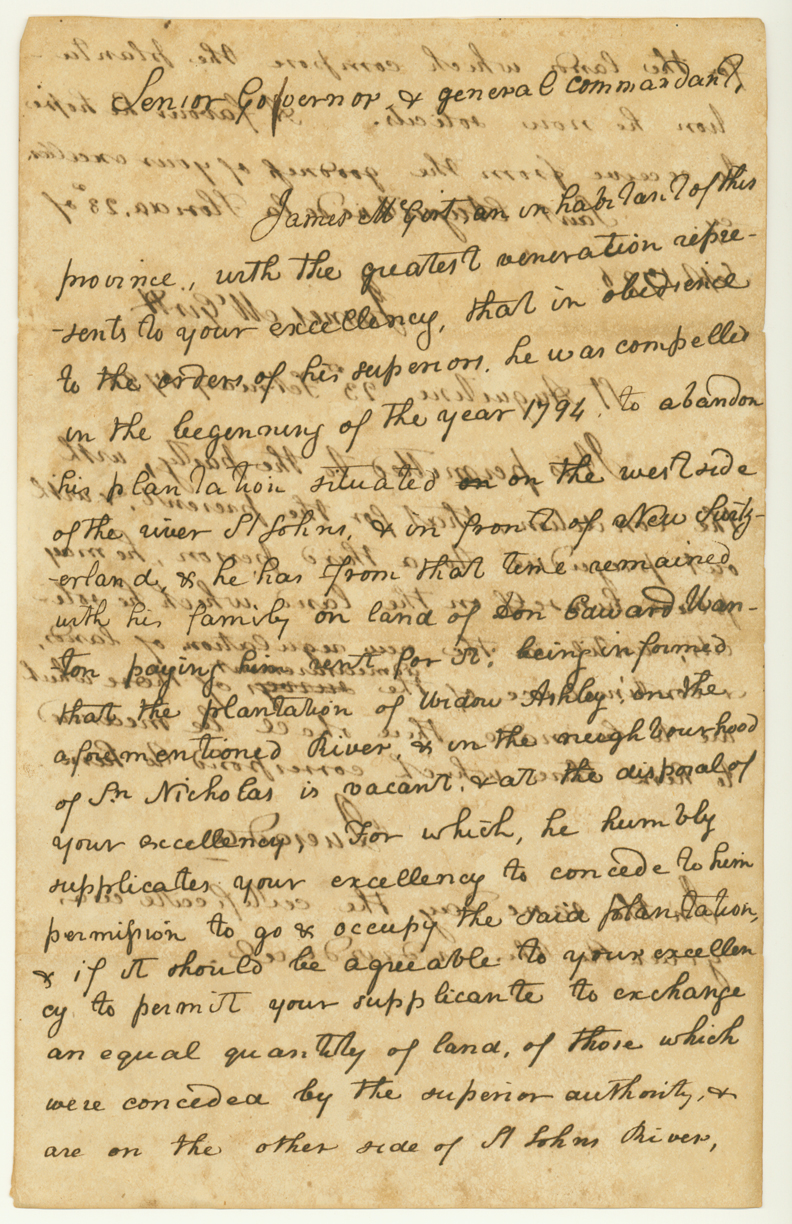 Senior Governor & general commandant,
James McGirt an inhabitant of this
province,, with the greatest veneration repre-
-sents to your excellency, that in obedience
to the orders of his superiors. he was compelled
in the beginning of the year 1794. to abandon
his plantation situated on on the west side
of the river St Johns, & in front of New Switz-
-erland, & he has from that time remained
with his family on land of Don Edward Wan-
ton paying him rent for it: being informed
that the plantation of Widow Ashley on the
aforementioned River, & in the neightourhood
of Sn Nicholas is vacant. & at the disposal of
your excellency, For which, he humbly
supplicates your excellency to concede to him
permission to go & occupy the said plantation,
& if it should be agreeable to your excellen
cy to permit your supplicante to exchange
an equal quantity of land, of those which
were conceded by the superior authority, &
are on the other side of St Johns River,